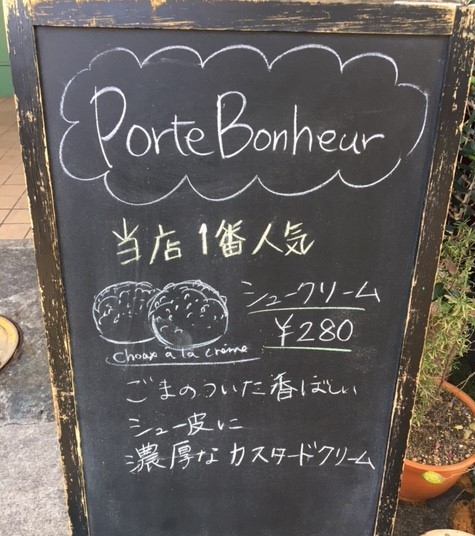 Porte Bonheur
当店1番人気
シュークリーム
¥280
choux a la crème
ごまのついた香ばしい
シュー皮に
濃厚なカスタードクリーム